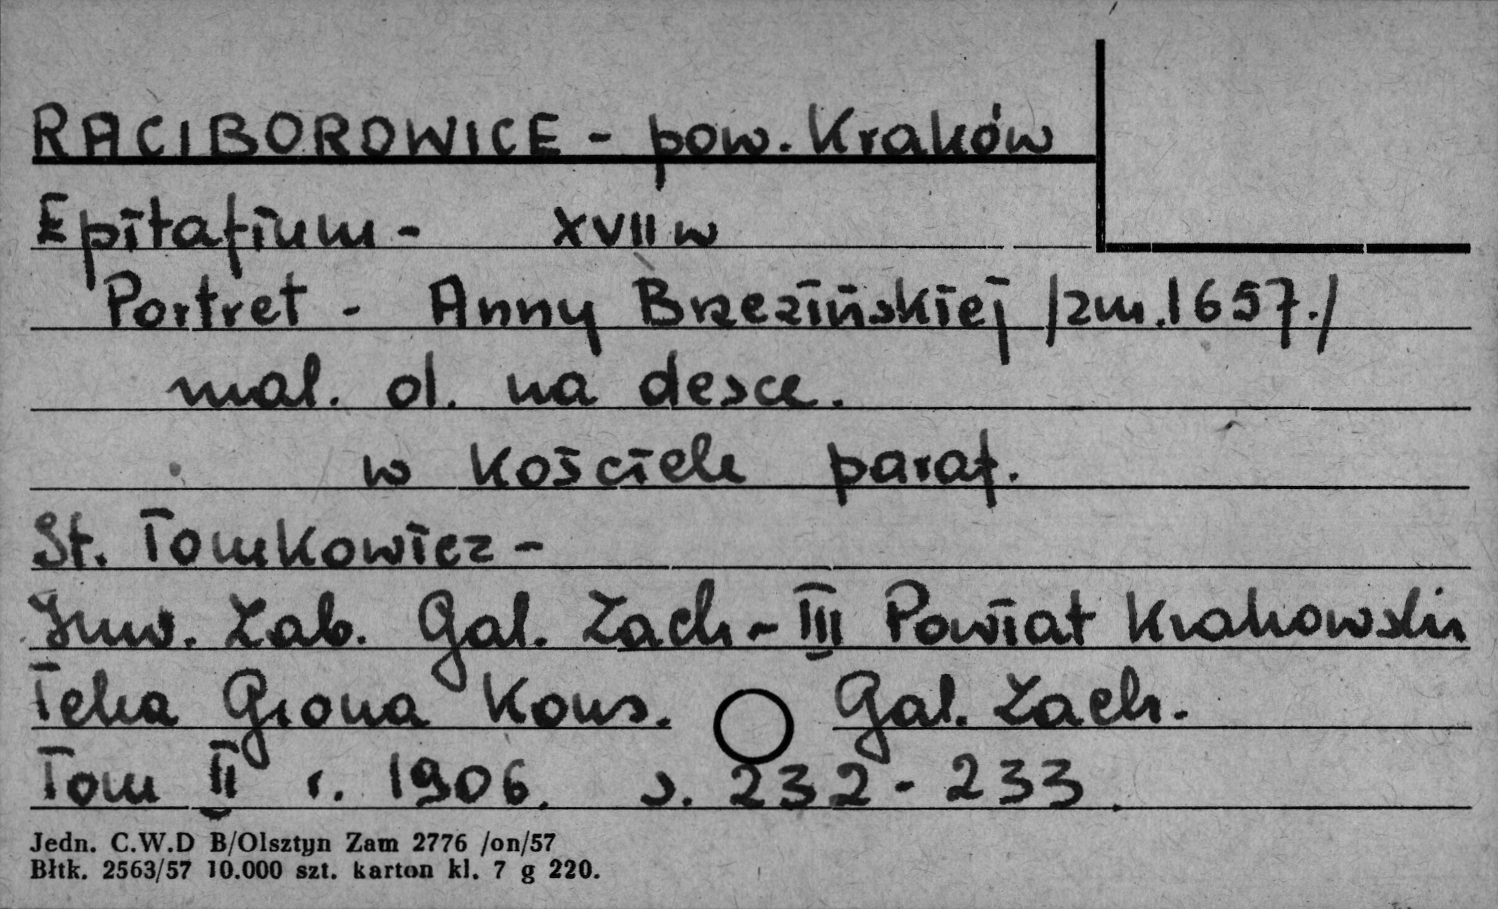 RACIBOROWICE - pow. Kraków
Epitafium - XVII w
Portret - Anny Brzezińskiej /zm. 1657./
mal. ol. na desce.
w kościele paraf.
St. Tomkowicz -
Inw. Zab. Gal. Zach - III Powiat Krakowski
Teka Grona Kons. Gal. Zach.
Tom II r. 1906. s. 232 - 233.
Jedn. C.W.D B/Olsztyn Zam 2776 /on/57
Błtk. 2563/57 10.000 szt. karton kl. 7 g 220.